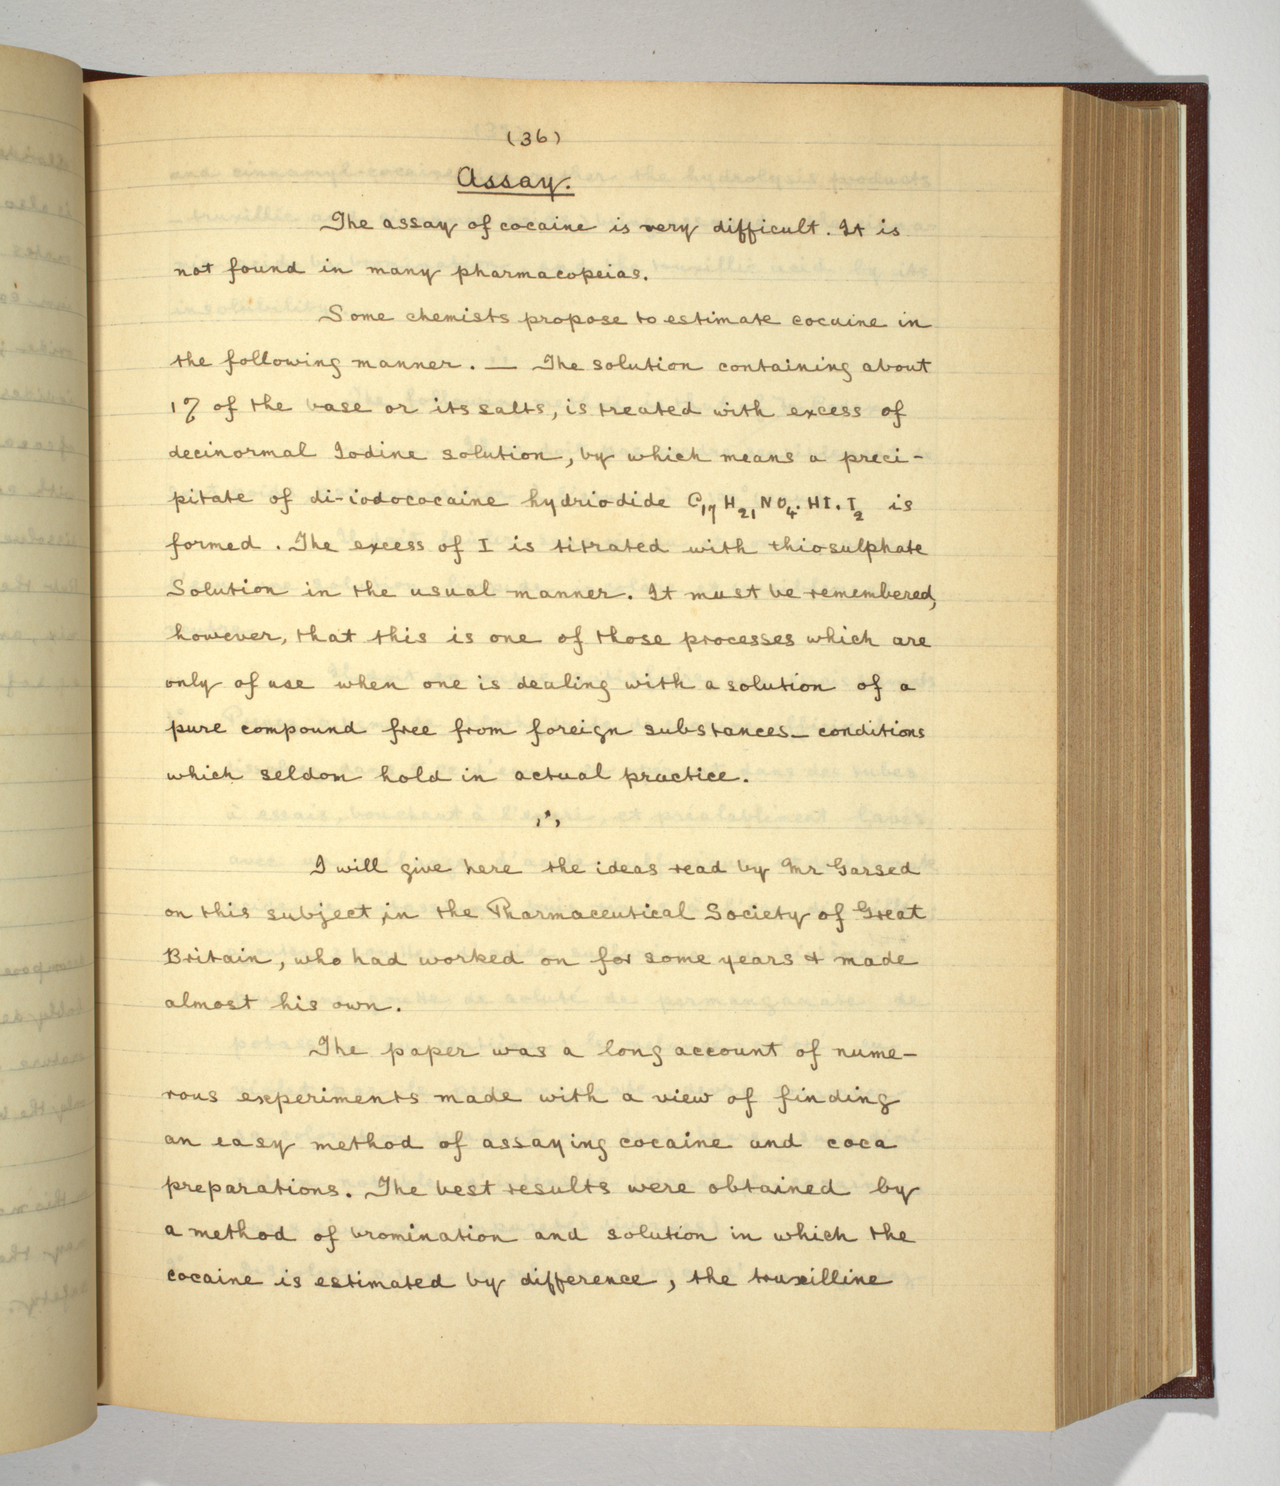 (36)
Assay.
The assay of cocaine is very difficult. It is
not found in many pharmacopeias.
Some chemists propose to estimate cocaine in
the following manner. — The solution containing about
1% of the base or its salts, is treated with excess of
decinormal Iodine solution, by which means a preci-
pitate of di-iodococaine hydriodide C₁₇H₂₁NO₄.HI.I₂ is
formed. The excess of I is titrated with thiosulphate
Solution in the usual manner. It must be remembered,
however, that this is one of those processes which are
only of use when one is dealing with a solution of a
pure compound free from foreign substances — conditions
which seldom hold in actual practice.
I will give here the ideas read by Mr Garsed
on this subject, in the Pharmaceutical Society of Great
Britain, who had worked on for some years & made
almost his own.
The paper was a long account of nume-
rous experiments made with a view of finding
an easy method of assaying cocaine and coca
preparations. The best results were obtained by
a method of bromination and solution in which the
cocaine is estimated by difference, the truxilline